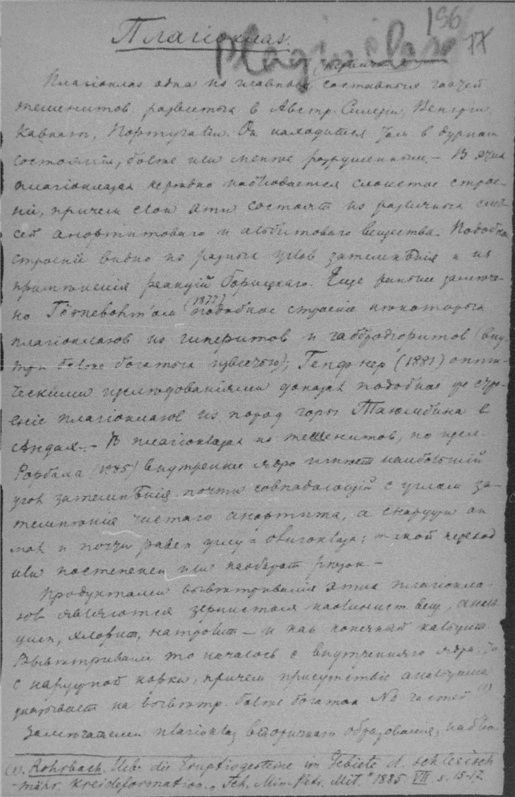 196
IX
Плагіоклаз.
Plagioclas
Плагіоклаз одна из главных составных частей
тешенитов, развитых в Австр. Силезіи, Венгріи,
Кавказе, Португаліи. Он находится в дурном
состояніи, более или менее разрушенным. — В этих
плагіоклазах нередко наблюдается слоистое строе-
ніе, причем слои эти состоят из различных сме-
сей анортитоваго и альбитоваго вещества. Подобное
строеніе видно из разных углов затемненія и из
примененія реакцій Борицкаго. Еще раньше замече-
но (1877) подобное строеніе некоторых
плагіоклазов из гиперитов и габбродіоритов (вну-
три более богатых известью); Гепфнер (1881) опти-
ческими изследованіями доказал подобное же стро-
еніе плагіоклазов из пород горы в
Андах. — В плагіоклазах из тешенитов, по изсл.
Рорбаха (1885) внутреннее ядро имеет наибольшій
угол затемненія, почти совпадающій с углом за-
темненія чистаго анортита, а снаружи он
мал и почти равен углу олигоклаза; переход
или постепенен или наоборот резок. —
Продуктами выветриванія этих плагіокла-
зов являются зернистое каолинист. вещ., аналь-
цим, натролит — и как конечный кальцит.
Выветриваніе то началось с внутренняго ядра, то
с наружной корки, причем присутствіе анальцима
указывает на выветр. более богатых Na частей (1)
плагіоклаз вторичнаго образованія, наблю-
(1). Rohrbach. Ueb. die Eruptivgesteine im Gebiete d. schlesisch
mähr. Kreideformation. „Tsch. Min. Petr. Mit." 1885 VII s. 15-17.